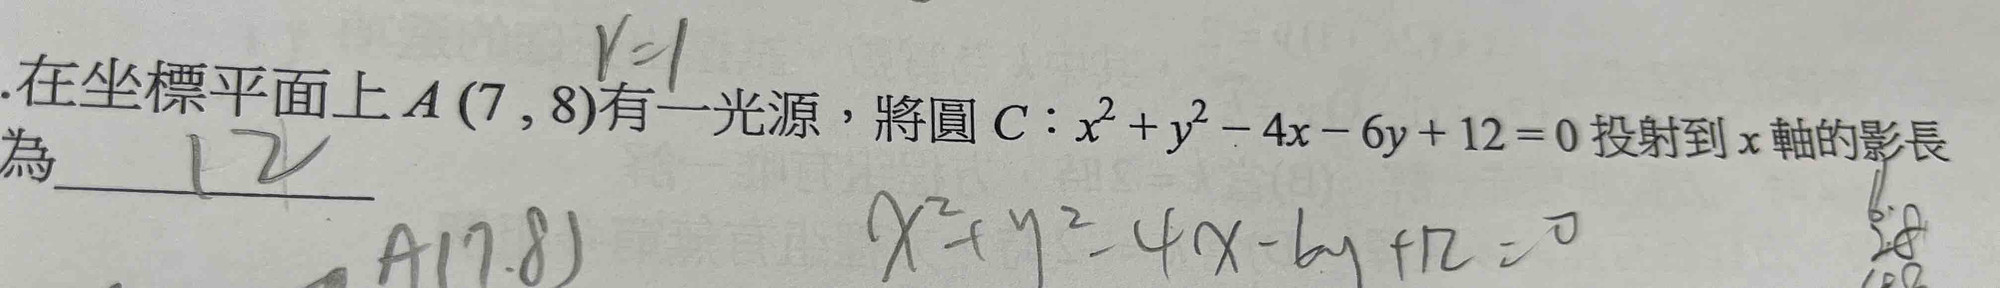 r=1
.在坐標平面上 A (7 , 8)有一光源，將圓 C：x² + y² − 4x − 6y + 12 = 0 投射到 x 軸的影長
為 12
A(7.8) x²+y²-4x-6y+12=0